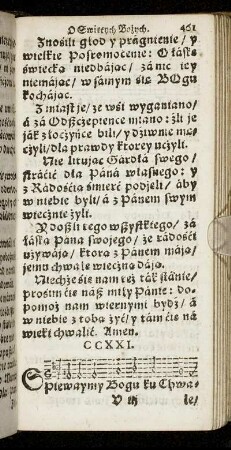 O Swiętych Bożych. 461
Znośili głod y prágnienie / y
wielkie Pojromocenie: O łáskę
świecką niedbájąc / zá nic jey
niemájąc / w sámym się BOgu
kochájąc.
Z miast je / ze wśi wygantano /
á zá Odszczepience miano: żli je
ják złoczyńce bili / y dźiwnie mę-
czyli / dla prawdy ktorey uczyli.
Nie litując Gardłá swego /
stráćić dla Páná własnego: y
z Rádośćią śmierć podjeli / áby
w niebie byli / á z Pánem swym
wiecznie żyli.
Y doszli tego wszystkiego / zá
łáską Páná swojego / że rádość
używają / ktorą z Pánem máją /
jemu chwałę wieczną dáją.
Niechże się nam też ták stánie /
prośim cie náß miły Pánie: do-
pomoż nam wiernymi bydź / á
w niebie z tobą żyć / y tám cie ná
wieki chwalić. Amen.
CCXXI.
Spiewaymy Bogu ku Chwa-
V iij łe /